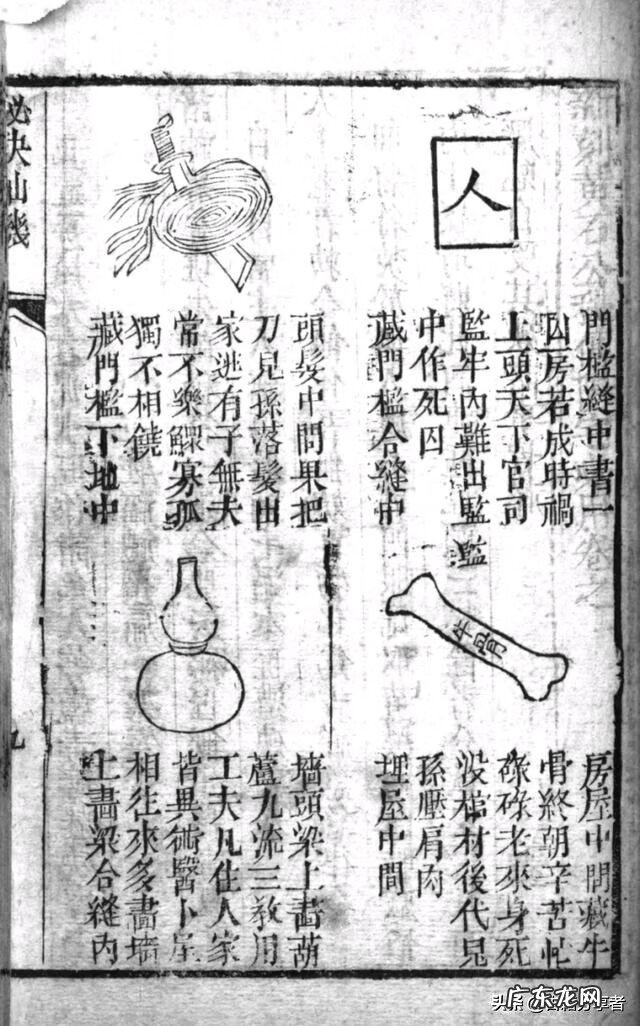 人
門檻縫中書一
囚房若成時禍
上頭天下官司
監牢內難出監監
中作死囚
藏門檻合縫中
頭髮中間果把
刀兒孫落髮出
家逃有子無夫
常不樂鰥寡孤
獨不相饒
藏門檻下地中
牛骨
房屋中間藏牛
骨終朝辛苦忙
碌碌老來身死
沒棺材後代兒
孫壓肩肉
埋屋中間
墻頭梁上畫葫
蘆九流三教用
工夫凡住人家
皆異術醫卜星
相往來多畫墻
上畫梁合縫內
秘決仙機
九
头条
分享者
广东龙网